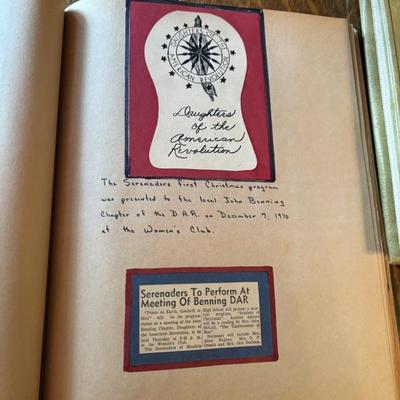 DAUGHTERS OF THE
AMERICAN REVOLUTION
Daughters
of the
American
Revolution
The Serenaders first Christmas program
was presented to the local John Benning
Chapter of the D.A.R. on December 7, 1970
at the Woman's Club.
Serenaders To Perform At
Meeting Of Benning DAR
"Peace on Earth, Goodwill to
Men" will be the program
theme at a meeting of the John
Benning Chapter, Daughters of
the American Revolution, to be
held Thursday at
at the Woman's Club.
The Serenaders of Moultrie
High School will present a musical
program, "Symbols of
Christmas". Another feature
will be a reading by Mrs. John
McCall, "The Typewriter of
Hostesses will include Mrs.
Hughes, Mrs. O. F.
and Mrs. Otis